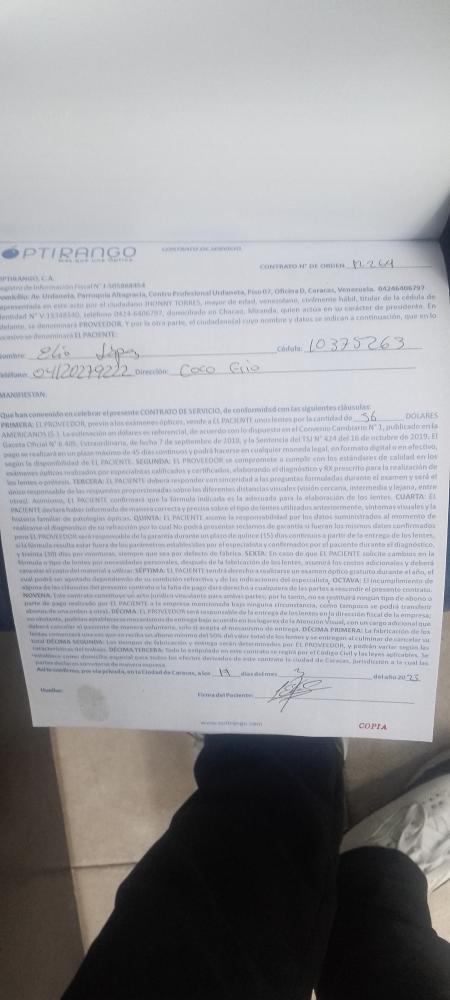 OPTIRANGO
Más que una Óptica
CONTRATO DE SERVICIO
CONTRATO N° DE ORDEN 12264
OPTIRANGO, C.A.
Registro de Información Fiscal N° J-505868454
Domicilio: Av. Urdaneta, Parroquia Altagracia, Centro Profesional Urdaneta, Piso 07, Oficina D, Caracas, Venezuela. 04246406797
representada en este acto por el ciudadano JHONNY TORRES, mayor de edad, venezolano, civilmente hábil, titular de la cédula de
identidad N° V-18348340, teléfono 0424-6406797, domiciliado en Chacao, Miranda, quien actúa en su carácter de presidente. En
adelante, se denominará PROVEEDOR. Y por la otra parte, el ciudadano(a) cuyo nombre y datos se indican a continuación, que en lo
sucesivo se denominará EL PACIENTE:
Nombre: Elio López Cédula: 10375263
Teléfono: 04120279222 Dirección: Coco Frio
MANIFIESTAN:
Que han convenido en celebrar el presente CONTRATO DE SERVICIO, de conformidad con las siguientes cláusulas:
PRIMERA: EL PROVEEDOR, previo a los exámenes ópticos, vende a EL PACIENTE unos lentes por la cantidad de 36 DOLARES
AMERICANOS ($ ). La estimación en dólares es referencial, de acuerdo con lo dispuesto en el Convenio Cambiario N° 1, publicado en la
Gaceta Oficial N° 6.405, Extraordinaria, de fecha 7 de septiembre de 2018, y la Sentencia del TSJ N° 424 del 16 de octubre de 2019. El
pago se realizará en un plazo máximo de 45 días continuos y podrá hacerse en cualquier moneda legal, en formato digital o en efectivo,
según la disponibilidad de EL PACIENTE. SEGUNDA: EL PROVEEDOR se compromete a cumplir con los estándares de calidad en los
exámenes ópticos realizados por especialistas calificados y certificados, elaborando el diagnóstico y RX prescrito para la realización de
los lentes o prótesis. TERCERA: EL PACIENTE deberá responder con sinceridad a las preguntas formuladas durante el examen y será el
único responsable de las respuestas proporcionadas sobre las diferentes distancias visuales (visión cercana, intermedia y lejana, entre
otras). Asimismo, EL PACIENTE confirmará que la fórmula indicada es la adecuada para la elaboración de los lentes. CUARTA: EL
PACIENTE declara haber informado de manera correcta y precisa sobre el tipo de lentes utilizados anteriormente, síntomas visuales y la
historia familiar de patologías ópticas. QUINTA: EL PACIENTE asume la responsabilidad por los datos suministrados al momento de
realizarse el diagnóstico de su refracción por lo cual No podrá presentar reclamos de garantía si fueran los mismos datos confirmados
pero EL PROVEEDOR será responsable de la garantía durante un plazo de quince (15) días continuos a partir de la entrega de los lentes,
si la fórmula resulta estar fuera de los parámetros establecidos por el especialista y confirmados por el paciente durante el diagnóstico,
y treinta (30) días por monturas, siempre que sea por defecto de fábrica. SEXTA: En caso de que EL PACIENTE solicite cambios en la
fórmula o tipo de lentes por necesidades personales, después de la fabricación de los lentes, asumirá los costos adicionales y deberá
cancelar el costo del material a utilizar. SÉPTIMA: EL PACIENTE tendrá derecho a realizarse un examen óptico gratuito durante el año, el
cual podrá ser ajustado dependiendo de su condición refractiva y de las indicaciones del especialista. OCTAVA: El incumplimiento de
alguna de las cláusulas del presente contrato o la falta de pago dará derecho a cualquiera de las partes a rescindir el presente contrato.
NOVENA: Este contrato constituye un acto jurídico vinculante para ambas partes; por lo tanto, no se restituirá ningún tipo de abono o
parte de pago realizado por EL PACIENTE a la empresa mencionada bajo ninguna circunstancia, como tampoco se podrá transferir
abonos de una orden a otra). DÉCIMA: EL PROVEEDOR será responsable de la entrega de los lentes en la dirección fiscal de la empresa;
no obstante, podrían establecerse mecanismos de entrega bajo acuerdo en los lugares de la Atención Visual, con un cargo adicional que
deberá cancelar el paciente de manera voluntaria, solo si acepta el mecanismo de entrega. DÉCIMA PRIMERA: La fabricación de los
lentes comenzará una vez que se reciba un abono mínimo del 50% del valor total de los lentes y se entregan al culminar de cancelar su
total DÉCIMA SEGUNDA: Los tiempos de fabricación y entrega serán determinados por EL PROVEEDOR, y podrán variar según las
características del trabajo. DÉCIMA TERCERA: Todo lo estipulado en este contrato se regirá por el Código Civil y las leyes aplicables. Se
establece como domicilio especial para todos los efectos derivados de este contrato la ciudad de Caracas, jurisdicción a la cual las
partes declaran someterse de manera expresa.
Así lo confirmo, por vía privada, en la Ciudad de Caracas, a los 14 días del mes 3 del año 2025
Huellas: Firma del Paciente:
www.optirango.com
COPIA